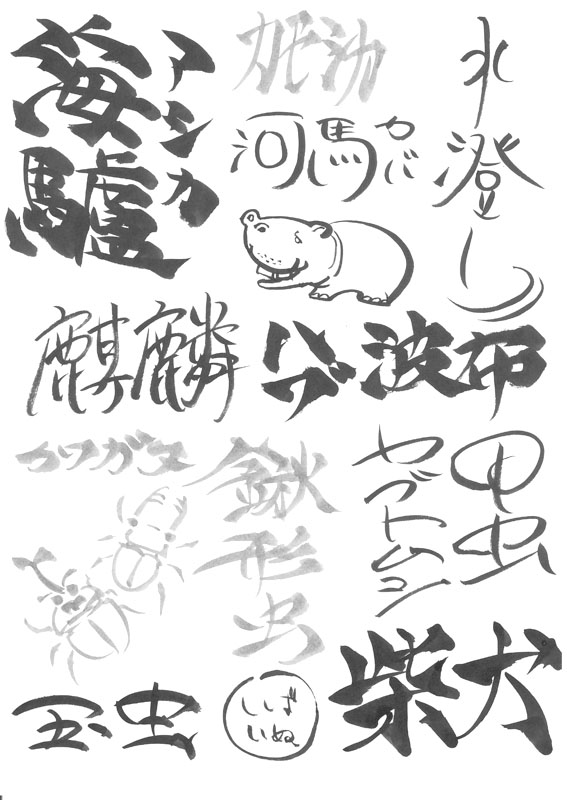 海驢
アシカ
カモシカ
河馬
カバ
水澄し
麒麟
ハブ
波布
クワガタ
鍬形虫
甲虫
カブトムシ
玉虫
しば
いぬ
柴犬